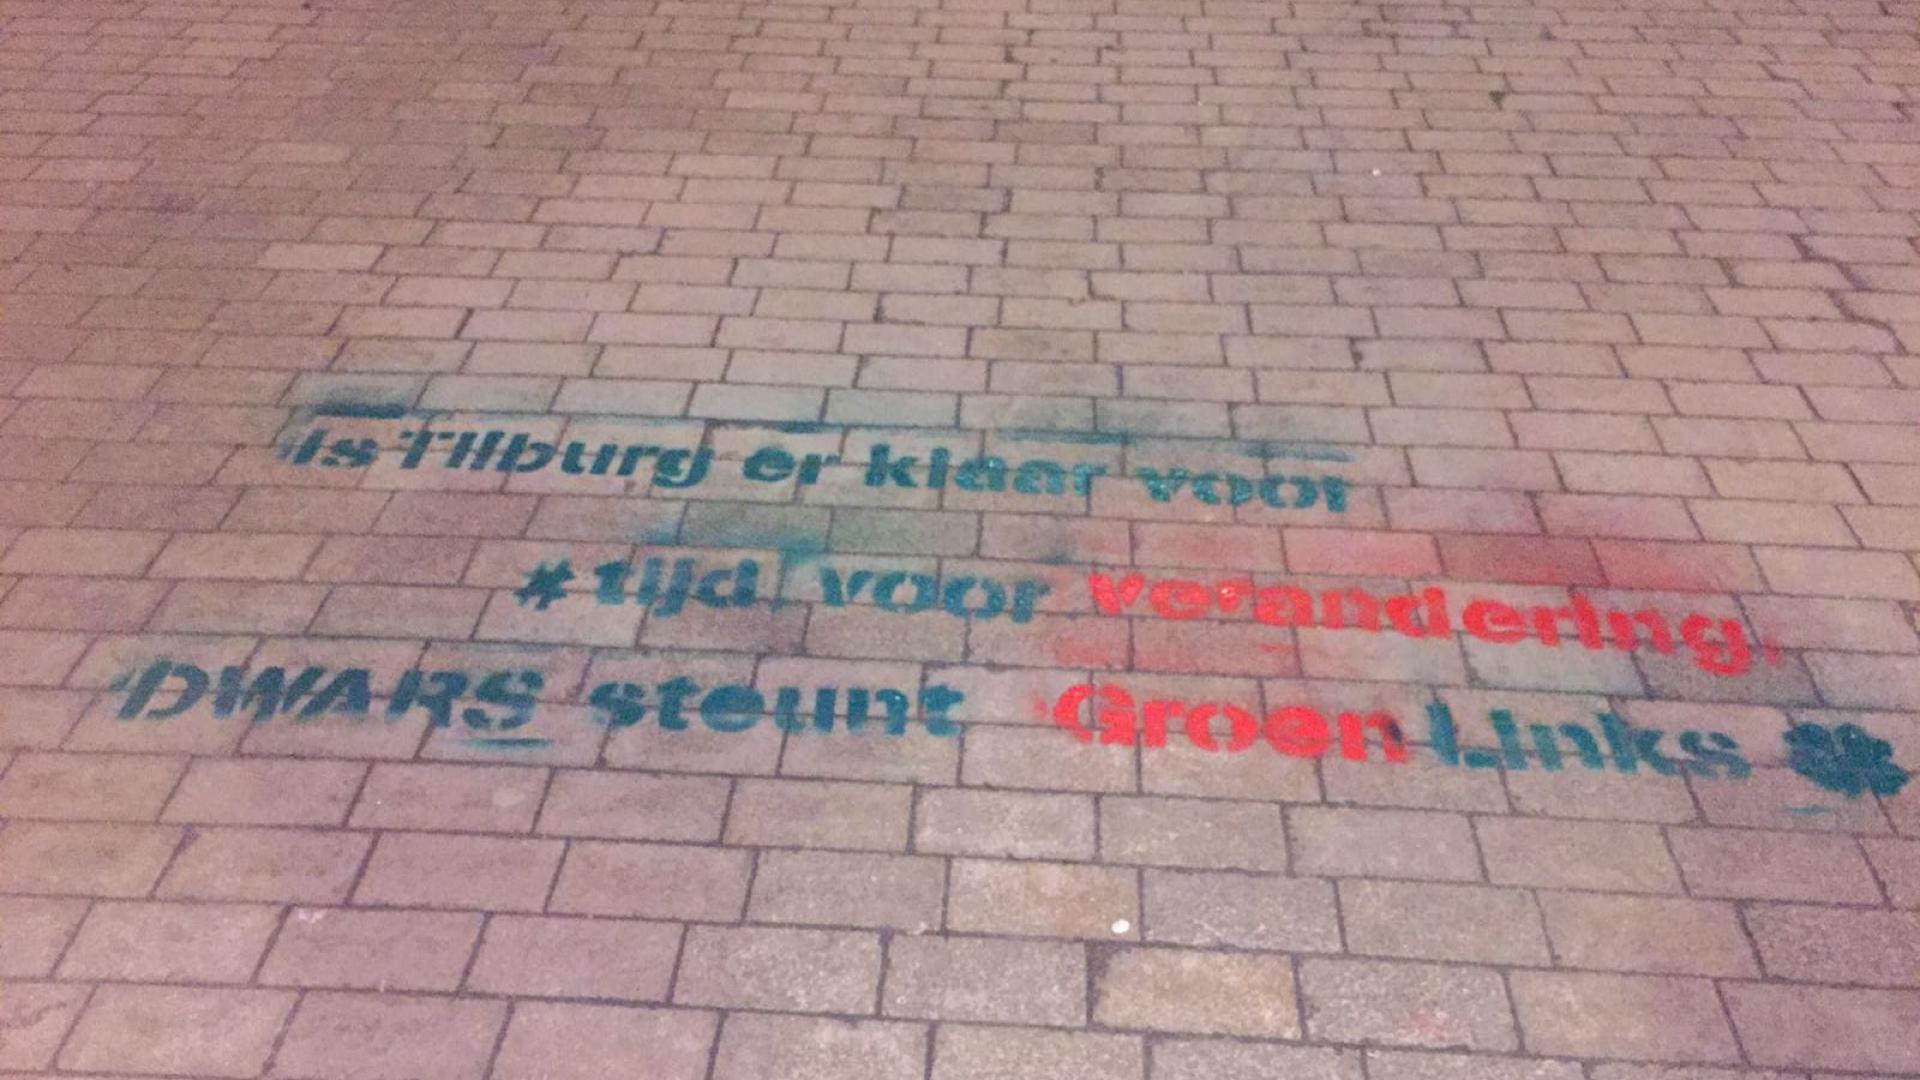 is Tilburg er klaar voor
#tijd voor verandering.
DWARS steunt GroenLinks